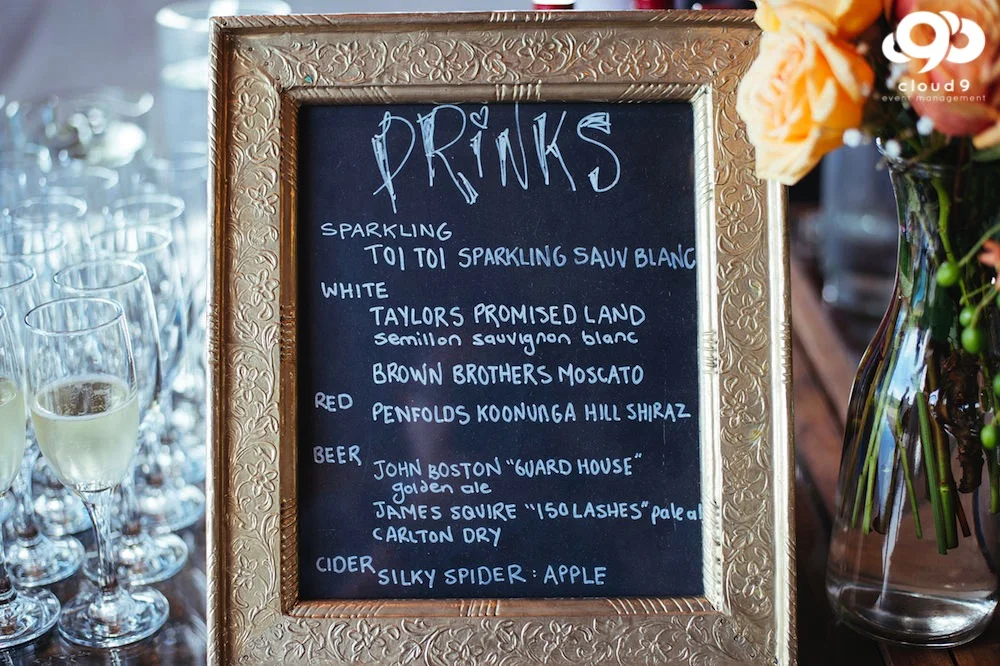 DRiNKS
SPARKLING
TOI TOI SPARKLING SAUV BLANC
WHITE
TAYLORS PROMISED LAND
semillon sauvignon blanc
BROWN BROTHERS MOSCATO
RED
PENFOLDS KOONUNGA HILL SHIRAZ
BEER
JOHN BOSTON "GUARD HOUSE"
golden ale
JAMES SQUIRE "150 LASHES" pale al
CARLTON DRY
CIDER
SILKY SPIDER : APPLE
cloud9
event management